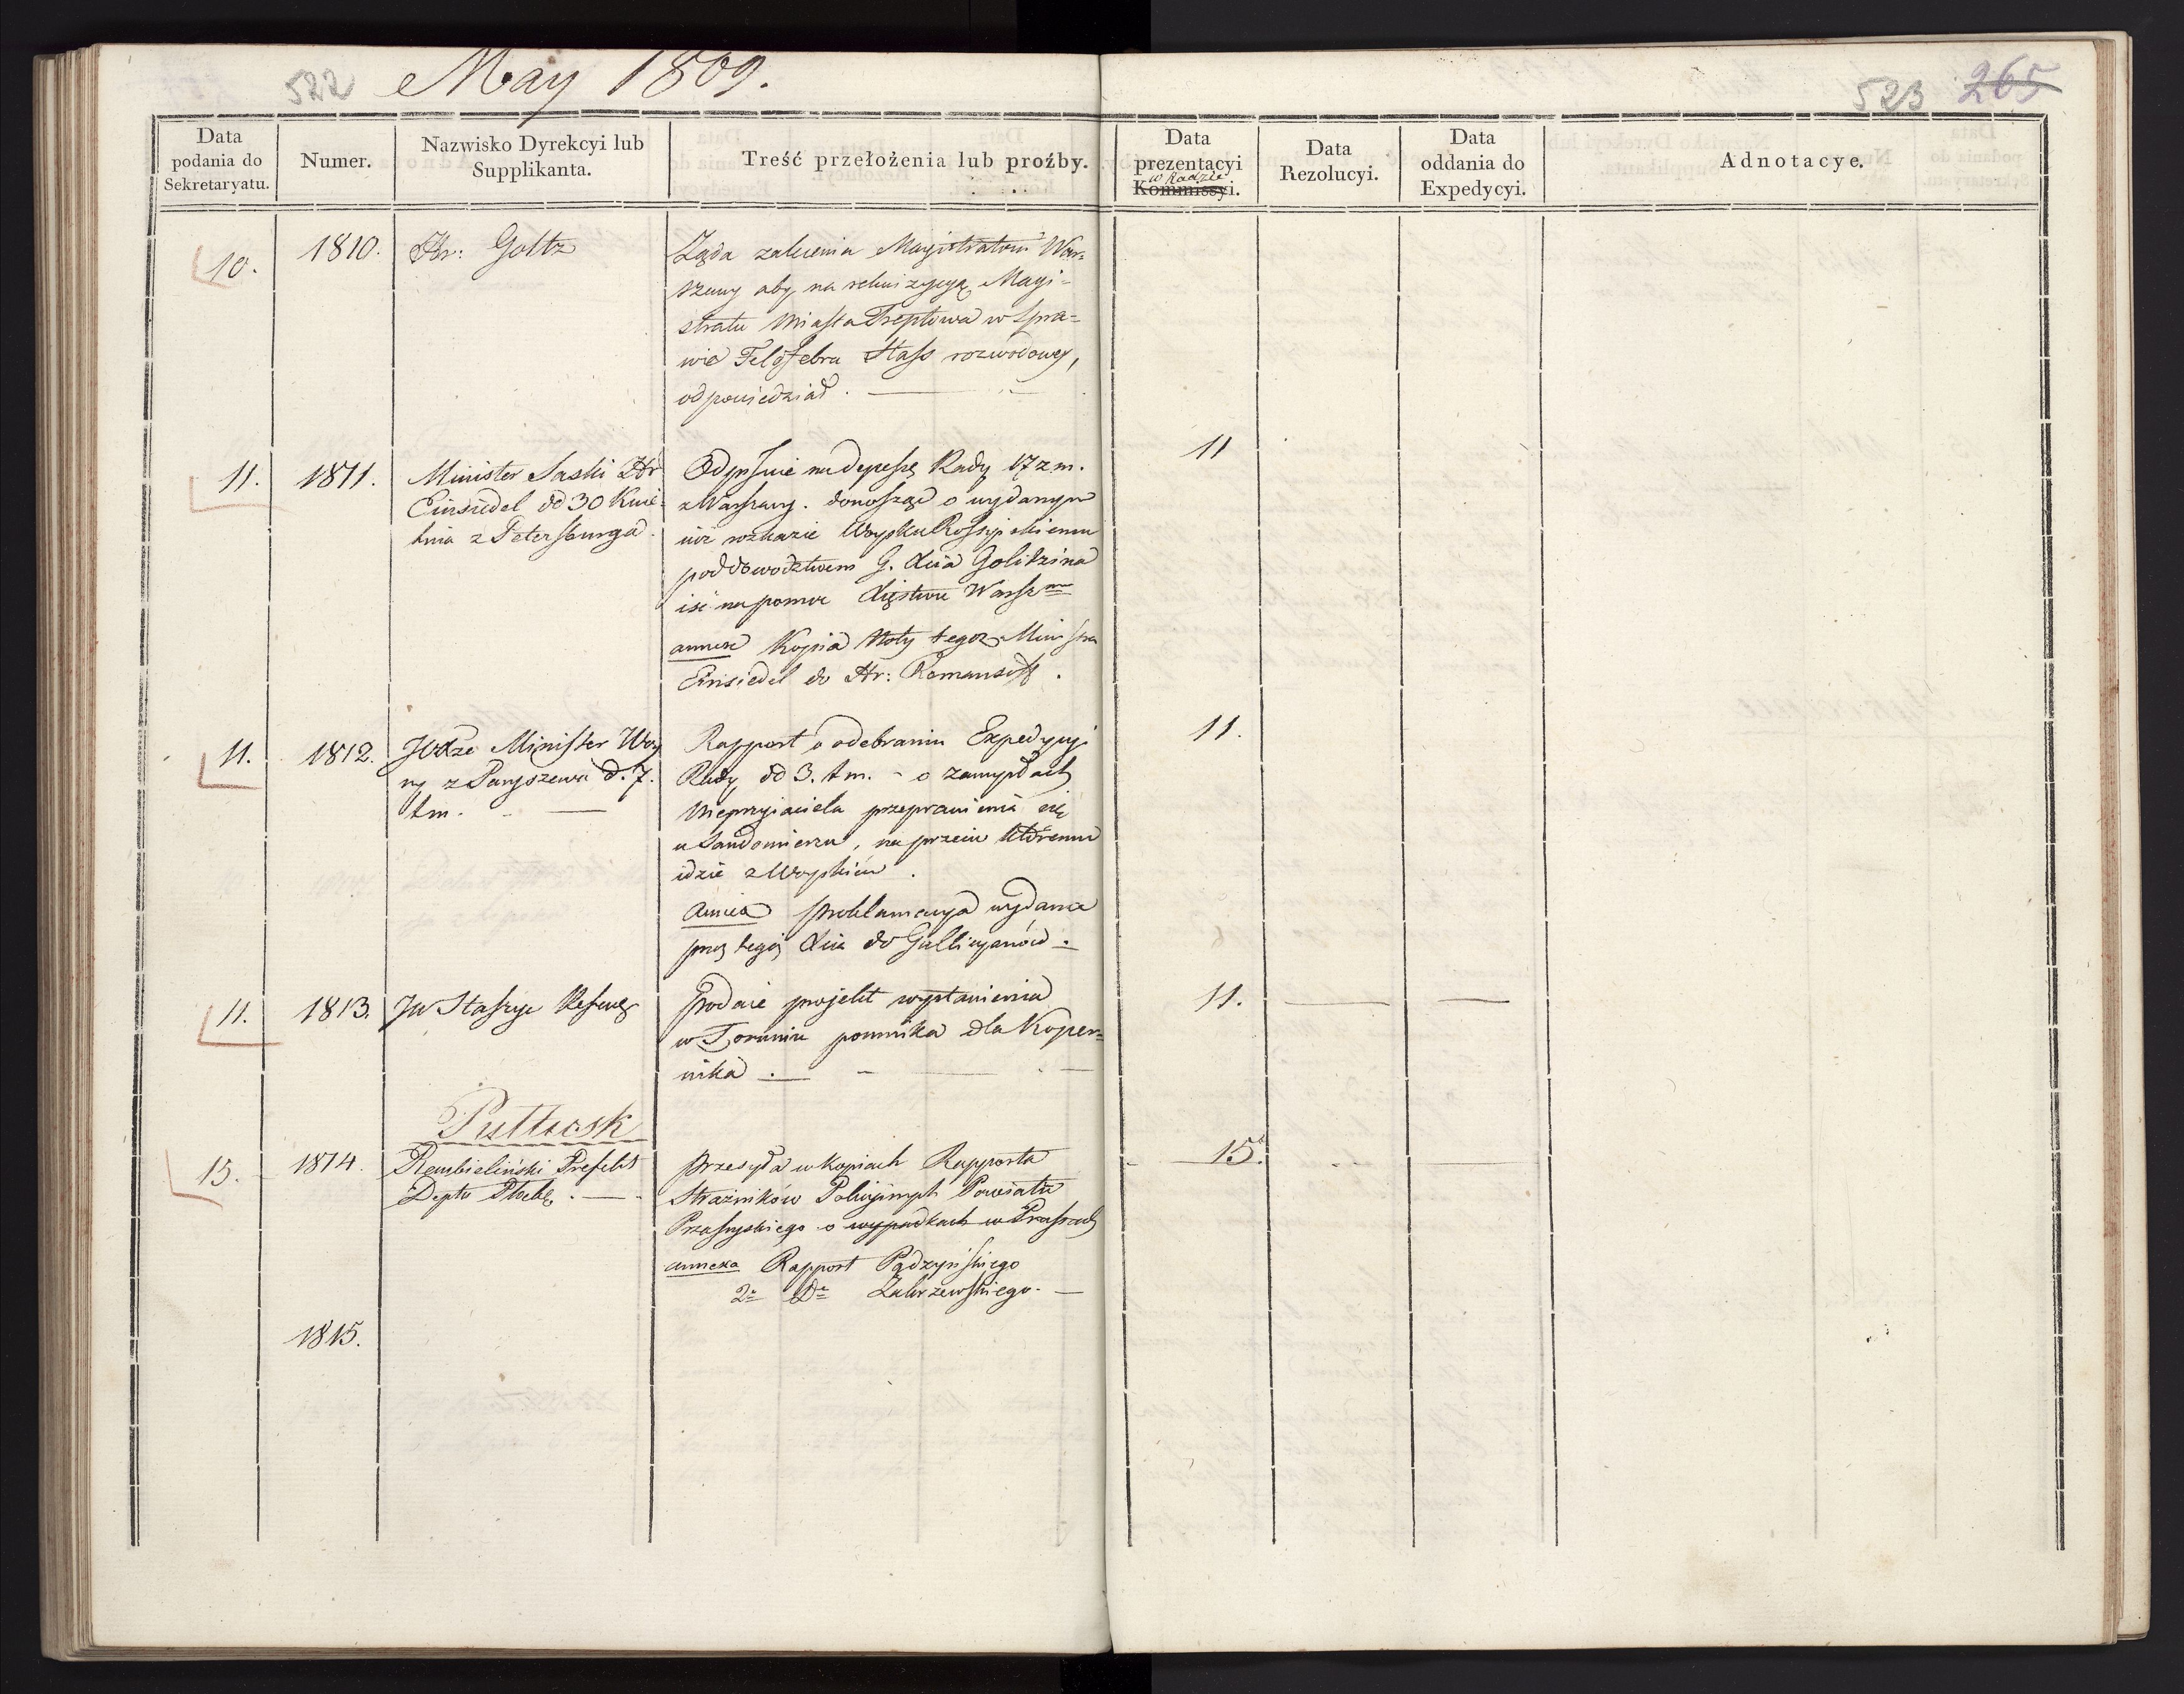 522 May 1809.
523 265
Data podania do Sekretaryatu.
Numer.
Nazwisko Dyrekcyi lub Supplikanta.
Treść przełożenia lub proźby.
Data prezentacyi w Radzie Kommissyi.
Data Rezolucyi.
Data oddania do Expedycyi.
Adnotacye.
10. 1810. Hr: Goltz
Żąda zalecenia Magistratowi War=
szawy aby na rekwizycyą Magi=
stratu Miasta Treptowa w Spra=
wie Feldfebra Hass rozwodowey,
odpowiedział.
11. 1811. Minister Saski Hr
Einsiedel dd 30 Kwie=
tnia z Petersburga.
Odpisuie na depeszę Rady 17 z.m.
z Warszawy. donosząc o wydanym
iuż rozkazie Woysku Rossyiskiemu
pod dowodztwem G. Xcia Golitzina
iść na pomoc Xięstwu Warszmu
annexe Kopia Noty tegoż Ministra
Einsiedel do Hr: Romansoff.
11
11. 1812. JOXże Minister Woy
ny z Paryszewa d. 7.
t.m.
Rapport o odebraniu Expedycyi
Rady dd 3. t.m. - o zamysłach
Nieprzyiaciela przeprawienia się
u Sandomierza, na przeciw któremu
idzie z Woyskiem.
Annexa proklamacya wydana
przez tegoż Xcia do Gallicyanów.
11.
11. 1813. JW Staszyc Refend
Podaie projekt wystawienia
w Toruniu pomnika dla Koper=
nika.
11.
Pułtusk
15. 1814. Rembieliński Prefekt
Deptu Płockg.
przesyła w kopiach Rapporta
Strażników Policyinych Powiatu
Przasnyskiego o wypadkach w Prusach
annexa Rapport Pądzyńskiego
2o Do Zakrzewskiego.
15.
1815.